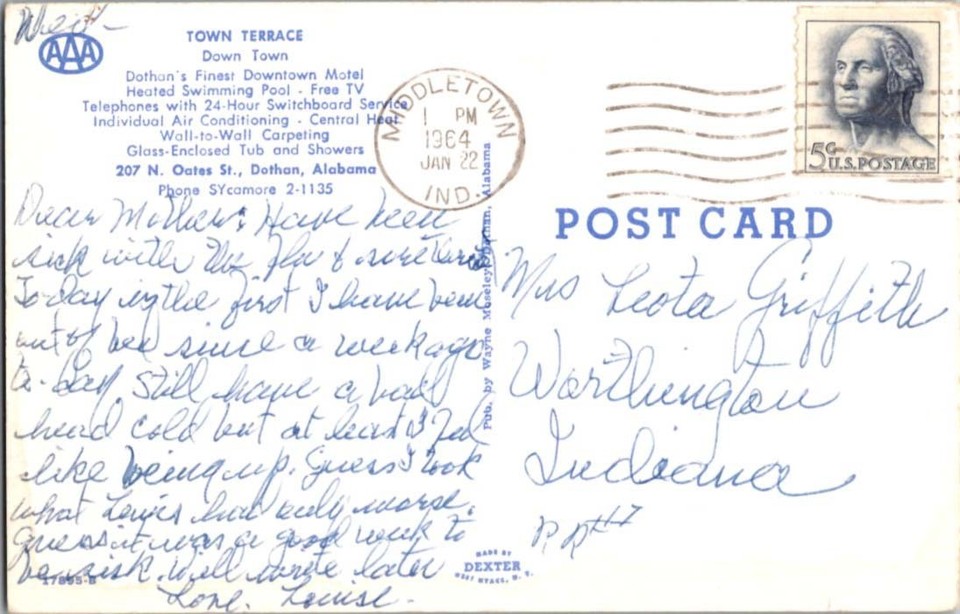 Wed -
AAA
TOWN TERRACE
Down Town
Dothan's Finest Downtown Motel
Heated Swimming Pool - Free TV
Telephones with 24-Hour Switchboard Service
Individual Air Conditioning - Central Heat
Wall-to-Wall Carpeting
Glass-Enclosed Tub and Showers
207 N. Oates St., Dothan, Alabama
Phone SYcamore 2-1135
Dear Mother: Have been
sick with the flu &
To day is the first I have been
out of bed since a week ago
to-day. Still have a bad
head cold but at least I feel
like being up. Guess I took
what Louis had only worse.
Guess it was a good week to
be sick. Will write later
Love. Louise.
17895-B
MIDDLETOWN
1 PM
1964
JAN 22
IND.
Pub. by Wayne Moseley, Dothan, Alabama
5c U.S. POSTAGE
POST CARD
Mrs Leota Griffith
Worthington
Indiana
R R #1
MADE BY
DEXTER
WEST NYACK, N. Y.